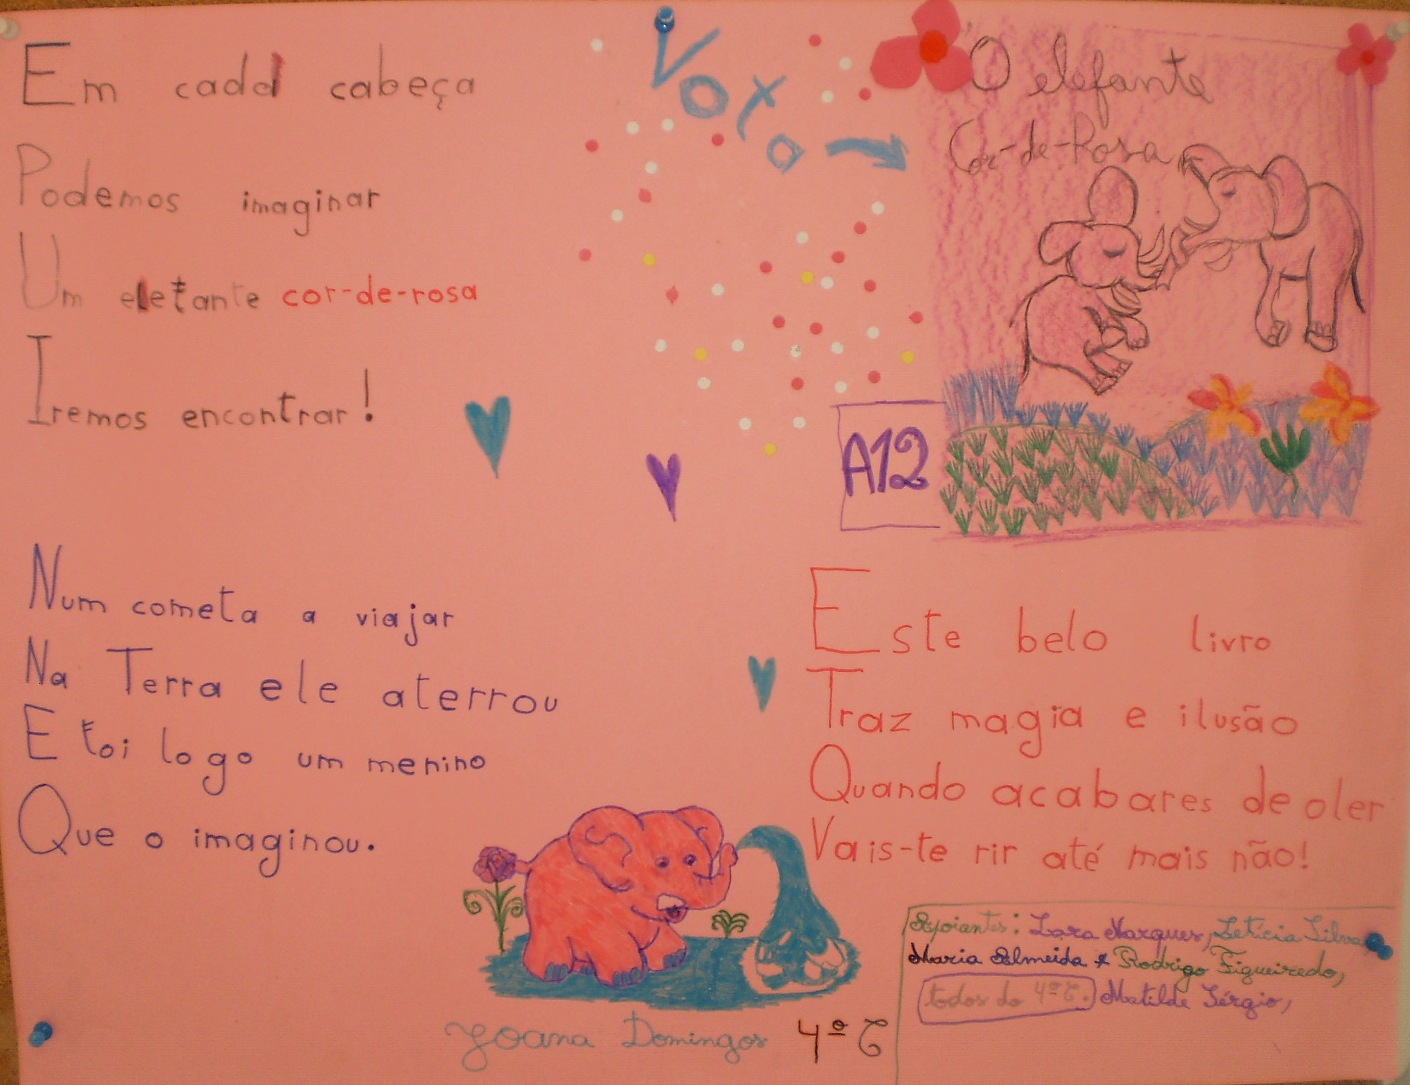 Em cada cabeça
Podemos imaginar
Um elefante cor-de-rosa
Iremos encontrar!
Vota
O elefante
Cor-de-Rosa
A12
Num cometa a viajar
Na Terra ele aterrou
E foi logo um menino
Que o imaginou.
Este belo livro
Traz magia e ilusão
Quando acabares de o ler
Vais-te rir até mais não!
Apoiantes: Lara Marques, Letícia Silva
Maria Almeida e Rodrigo Figueiredo,
todos do 4º C. Matilde Sérgio,
Joana Domingos 4º C